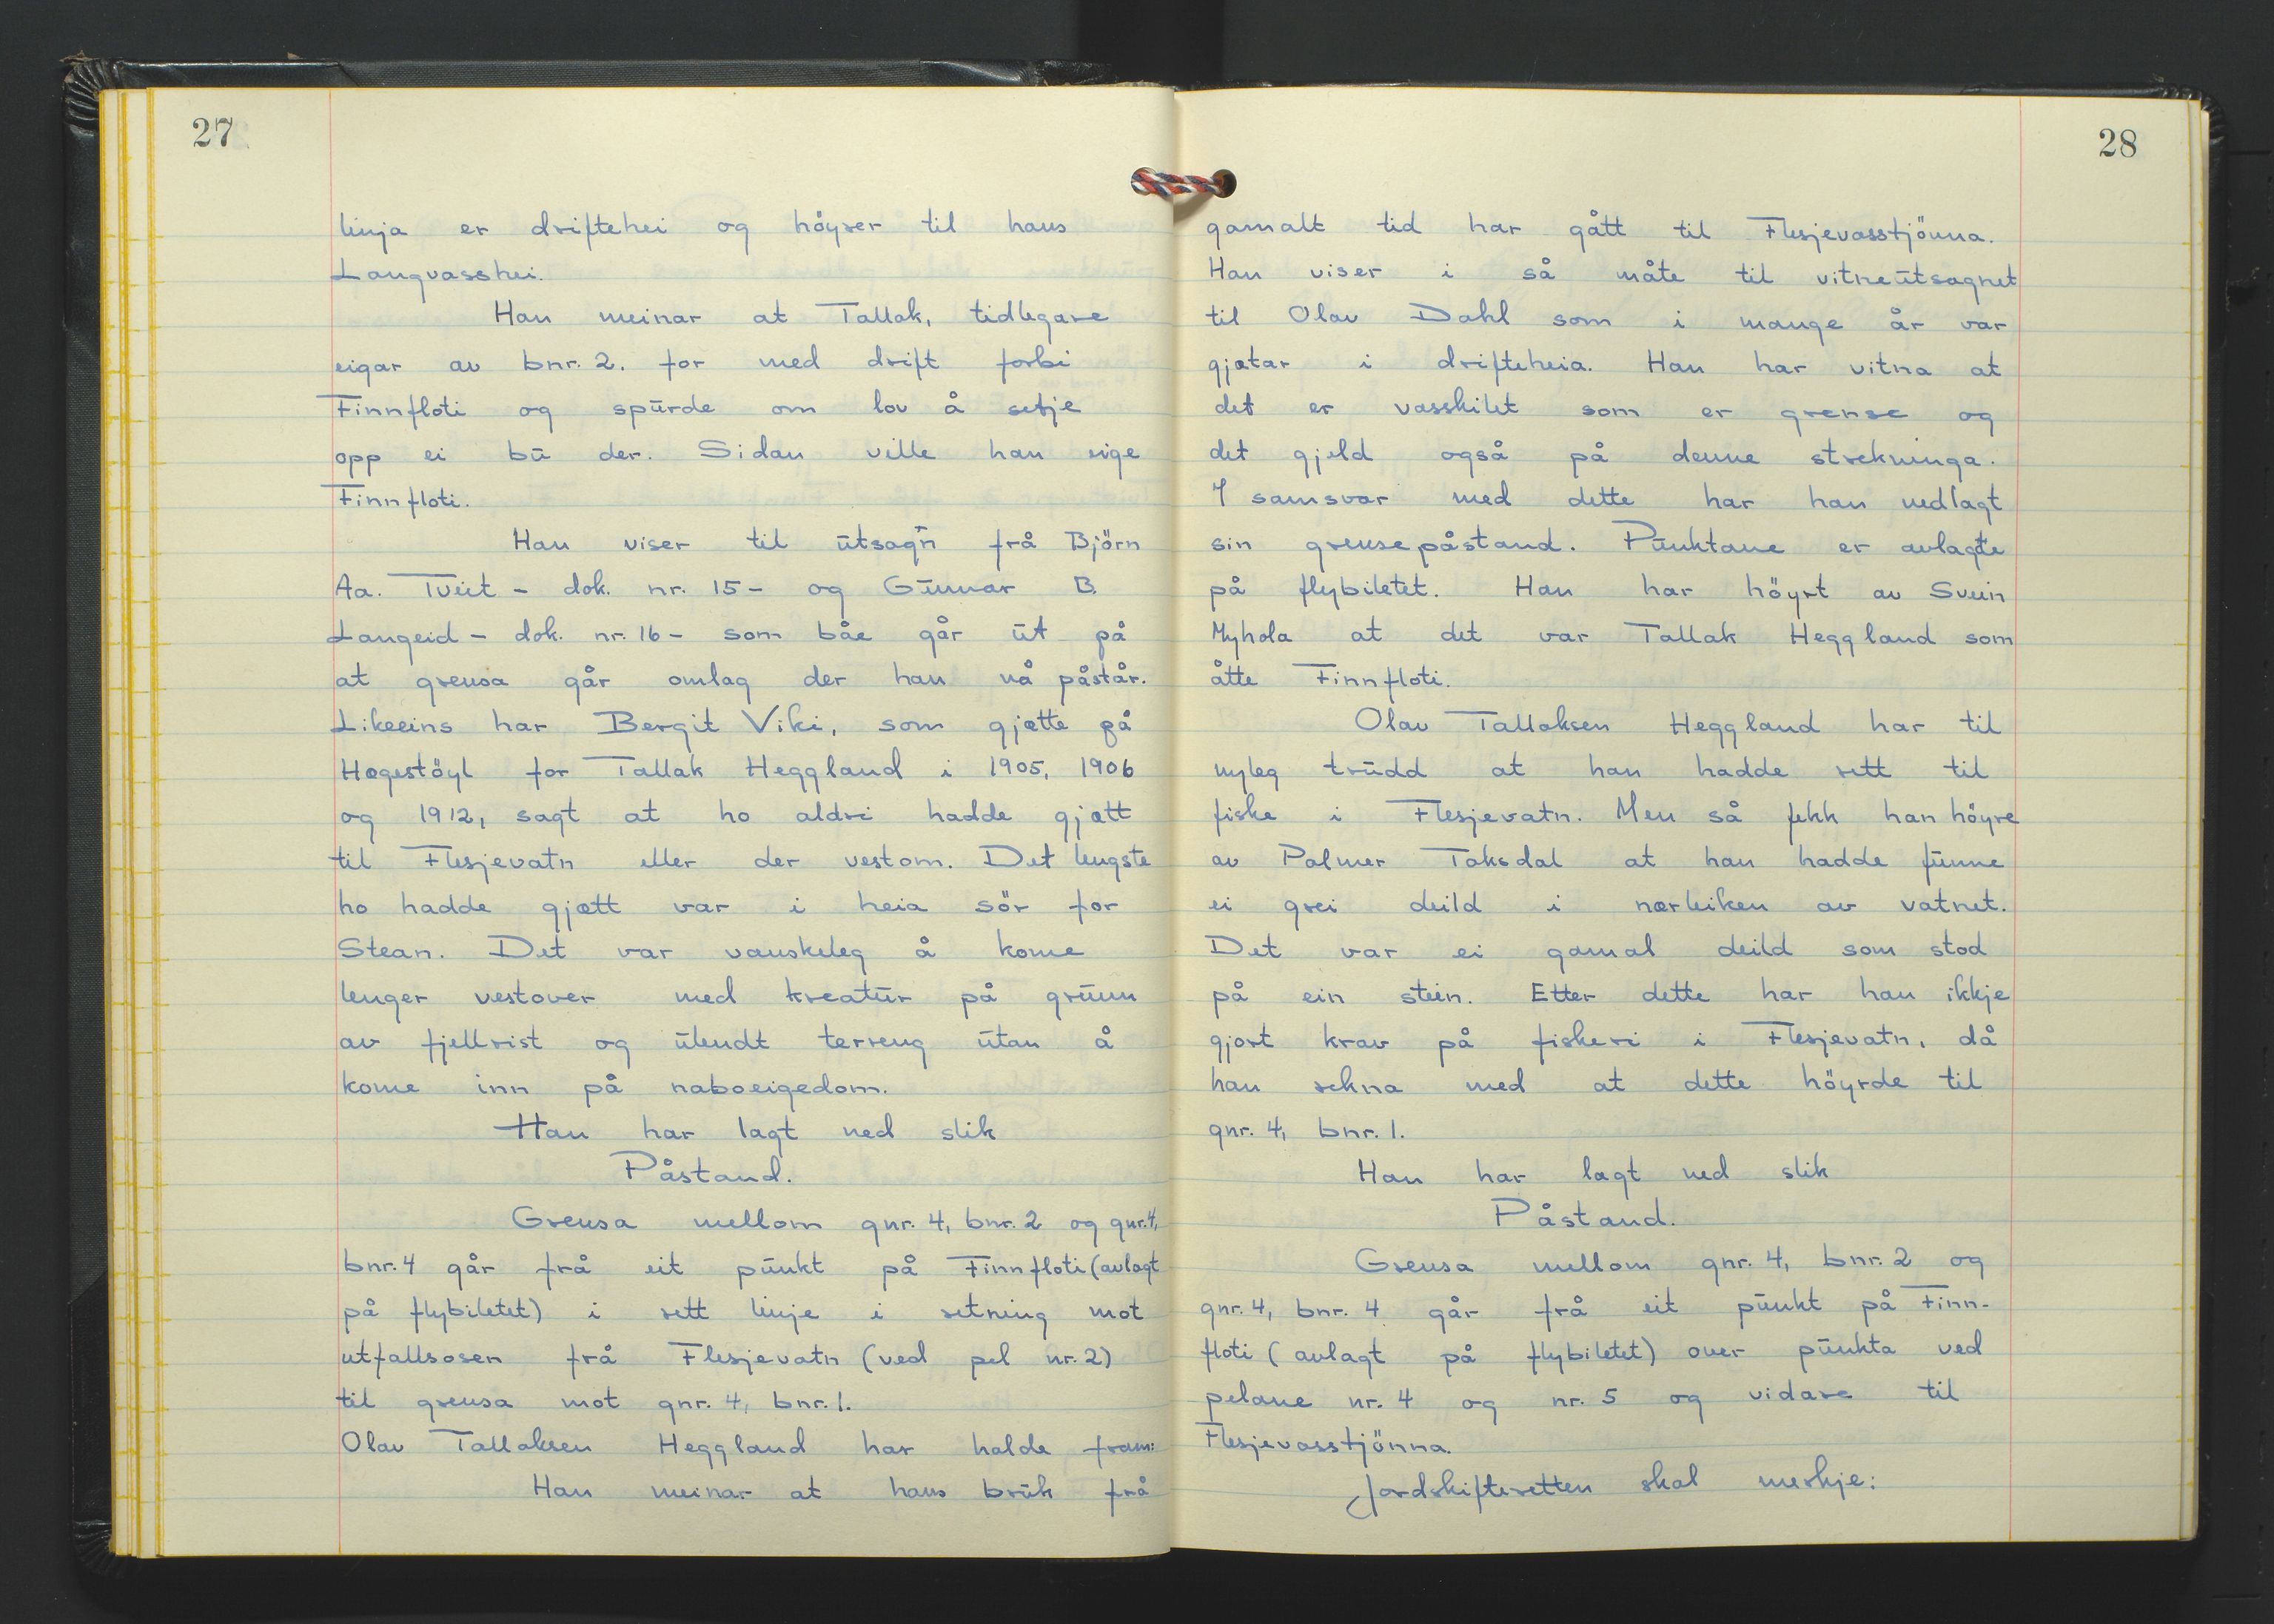 27
linja er driftehei og höyrer til hans
Langvasshei.
Han meinar at Tallak, tidlegare
eigar av bnr. 2. for med drift forbi
Finnfloti og spurde om lov å setje
opp ei bu der. Sidan ville han eige
Finnfloti.
Han viser til utsagn frå Björn
Aa. Tveit - dok. nr. 15 - og Gunnar B.
Langeid - dok. nr. 16 - som båe går ut på
at grensa går omlag der han nå påstår.
Likeeins har Bergit Viki, som gjætte på
Hægestöyl for Tallak Heggland i 1905, 1906
og 1912, sagt at ho aldri hadde gjætt
til Flesjevatn eller der vestom. Det lengste
ho hadde gjætt var i heia sör for
Stean. Det var vanskeleg å kome
lenger vestover med kreatur på grunn
av fjellrist og ulendt terreng utan å
kome inn på naboeigedom.
Han har lagt ned slik
Påstand.
Grensa mellom gnr. 4, bnr. 2 og gnr. 4,
bnr. 4 går frå eit punkt på Finnfloti (avlagt
på flybiletet) i rett linje i retning mot
utfallsosen frå Flesjevatn (ved pel nr. 2)
til grensa mot gnr. 4, bnr. 1.
Olav Tallaksen Heggland har halde fram:
Han meinar at hans bruk frå
28
gamalt tid har gått til Flesjevasstjönna.
Han viser i så måte til vitneutsagnet
til Olav Dahl som i mange år var
gjætar i drifteheia. Han har vitna at
det er vasskilet som er grense og
det gjeld også på denne strekninga.
I samsvar med dette har han nedlagt
sin grensepåstand. Punktane er avlagde
på flybiletet. Han har höyrt av Svein
Myhola at det var Tallak Heggland som
åtte Finnfloti.
Olav Tallaksen Heggland har til
nyleg trudd at han hadde rett til
fiske i Flesjevatn. Men så fekk han höyre
av Palmer Taksdal at han hadde funne
ei grei deild i nærleiken av vatnet.
Det var ei gamal deild som stod
på ein stein. Etter dette har han ikkje
gjort krav på fiskeri i Flesjevatn, då
han rekna med at dette höyrde til
gnr. 4, bnr. 1.
Han har lagt ned slik
Påstand.
Grensa mellom gnr. 4, bnr. 2 og
gnr. 4, bnr. 4 går frå eit punkt på Finn-
floti (avlagt på flybiletet) over punkta ved
pelane nr. 4 og nr. 5 og vidare til
Flesjevasstjönna.
Jordskifteretten skal merkje: